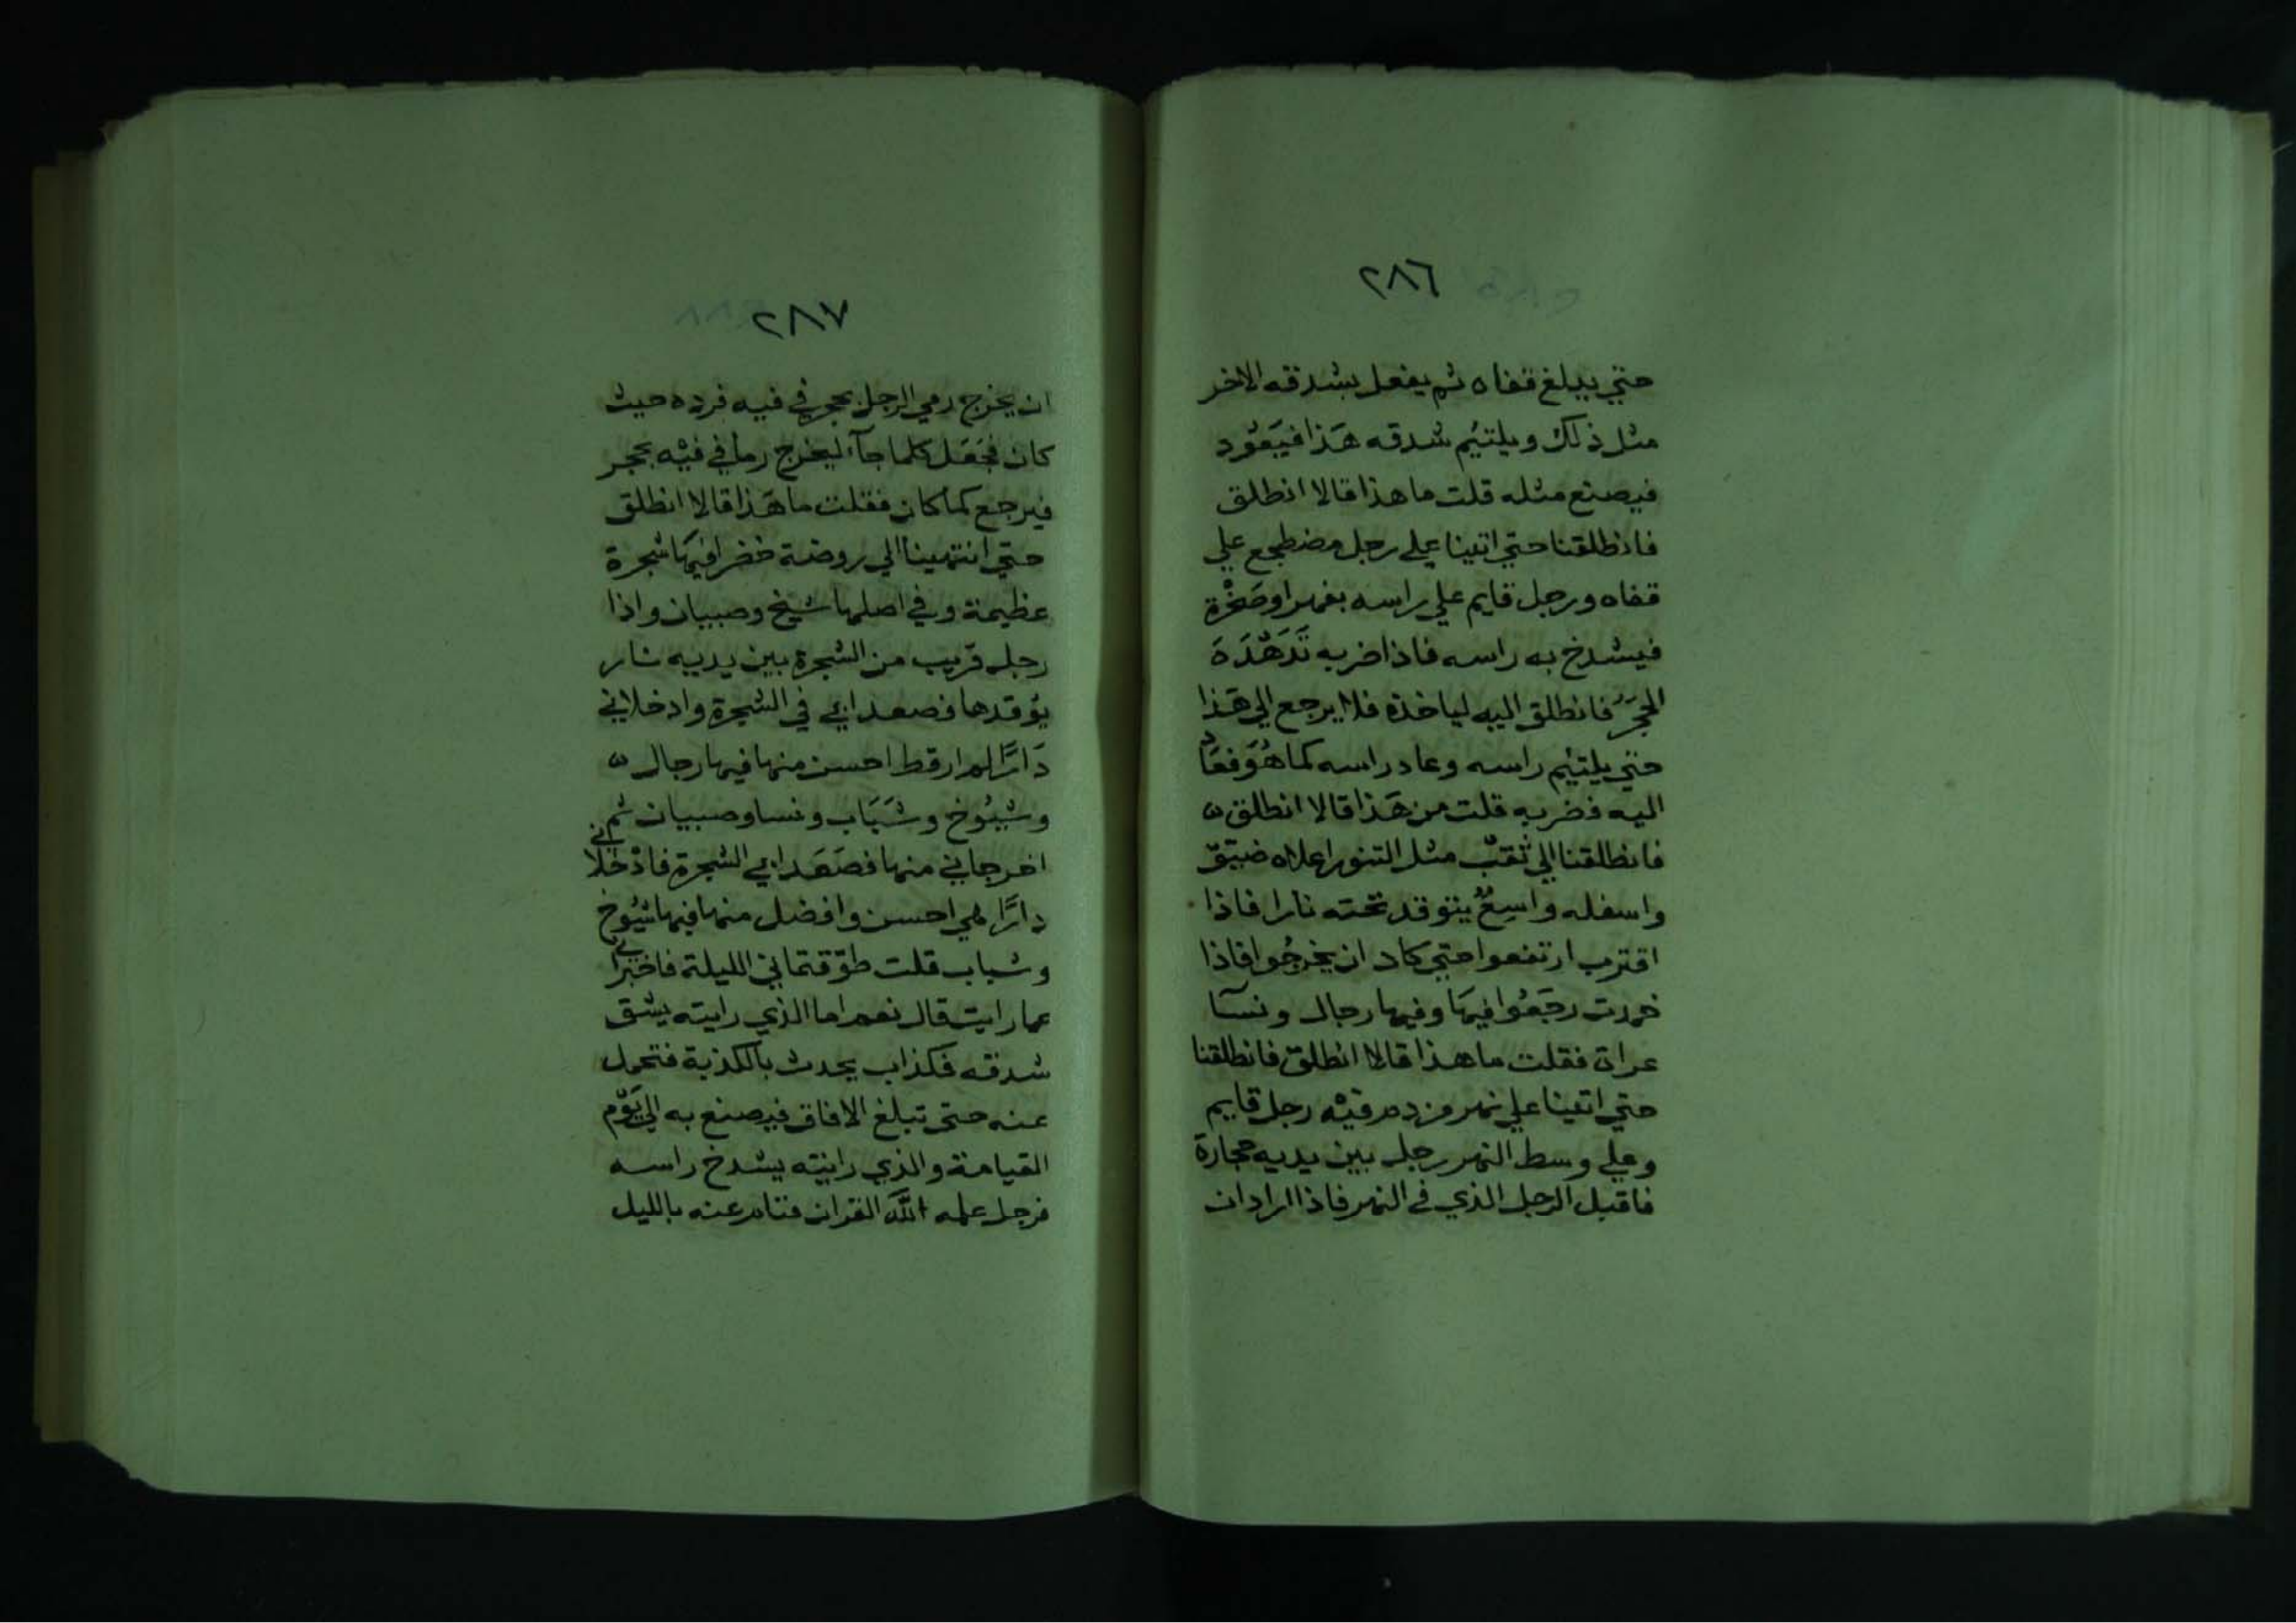 ٢٨٦
حتي يبلغ قفاه ثم يفعل بشدقه الاخر
مثل ذلك ويلتئم شدقه هَذا فيَعُود
فيصنع مثله قلت ما هذا قالا انطلق
فانطلقنا حتي اتينا علي رجل مضطجع علي
قفاه ورجل قايم علي راسه بفهر او صَخْرة
فيشدخ به راسه فاذا ضربه تَدَهْدَهَ
الحجَرُ فانطلق اليه لياخذه فلا يرجع الي هَذا
حتي يلتئم راسه وعاد راسه كما هُوَ فعَاد
اليه فضربه قلت من هَذا قالا انطلق
فانطلقنا الي ثقب مثل التنور اعلاه ضيّق
واسفله واسِعٌ يتوقد تحته نارا فاذا
اقترب ارتفعوا حتي كاد ان يخرجُوا فاذا
خمدت رجَعُوا فيهَا وفيها رجال ونسآ
عراة فقلت ما هذا قالا انطلق فانطلقنا
حتي اتينا علي نهر من دم فيْه رجل قايم
وعلي وسط النهر رجل بين يديه حجارة
فاقبل الرجل الذي في النهر فاذا اراد ان
٢٨٧
ان يخرج رمي الرجل بحجر في فيه فرده حيث
كان فجَعَل كلما جآ ليخرج رما في فيْه بحجر
فيرجع كما كان فقلت ما هَذا قالا انطلق
حتي انتهينا الي روضة خضرا فيهَا شجرة
عظيمة وفي اصلها شيخ وصبيان واذا
رجل قريب من الشجرة بين يديه نار
يُوقدها فصعدا بي في الشجرة وادخلاني
دَارًا لم ار قط احسن منها فيها رجال
وشيُوخ وشَبَاب ونسا وصبيان ثم
اخرجاني منها فصَعَدا بي الشجرة فادْخلاني
دارًا هي احسن وافضل منها فيها شيُوخ
وشباب قلت طوّقتماني الليلة فاخبراني
عما رايت قال نعم اما الذي رايته يشق
شدقه فكذاب يحدث بالكذبة فتحمل
عنه حتى تبلغ الافاق فيصنع به الي يَوْم
القيامة والذي رايته يشدخ راسه
فرجل علمه اللَّه القران فنام عنه بالليل